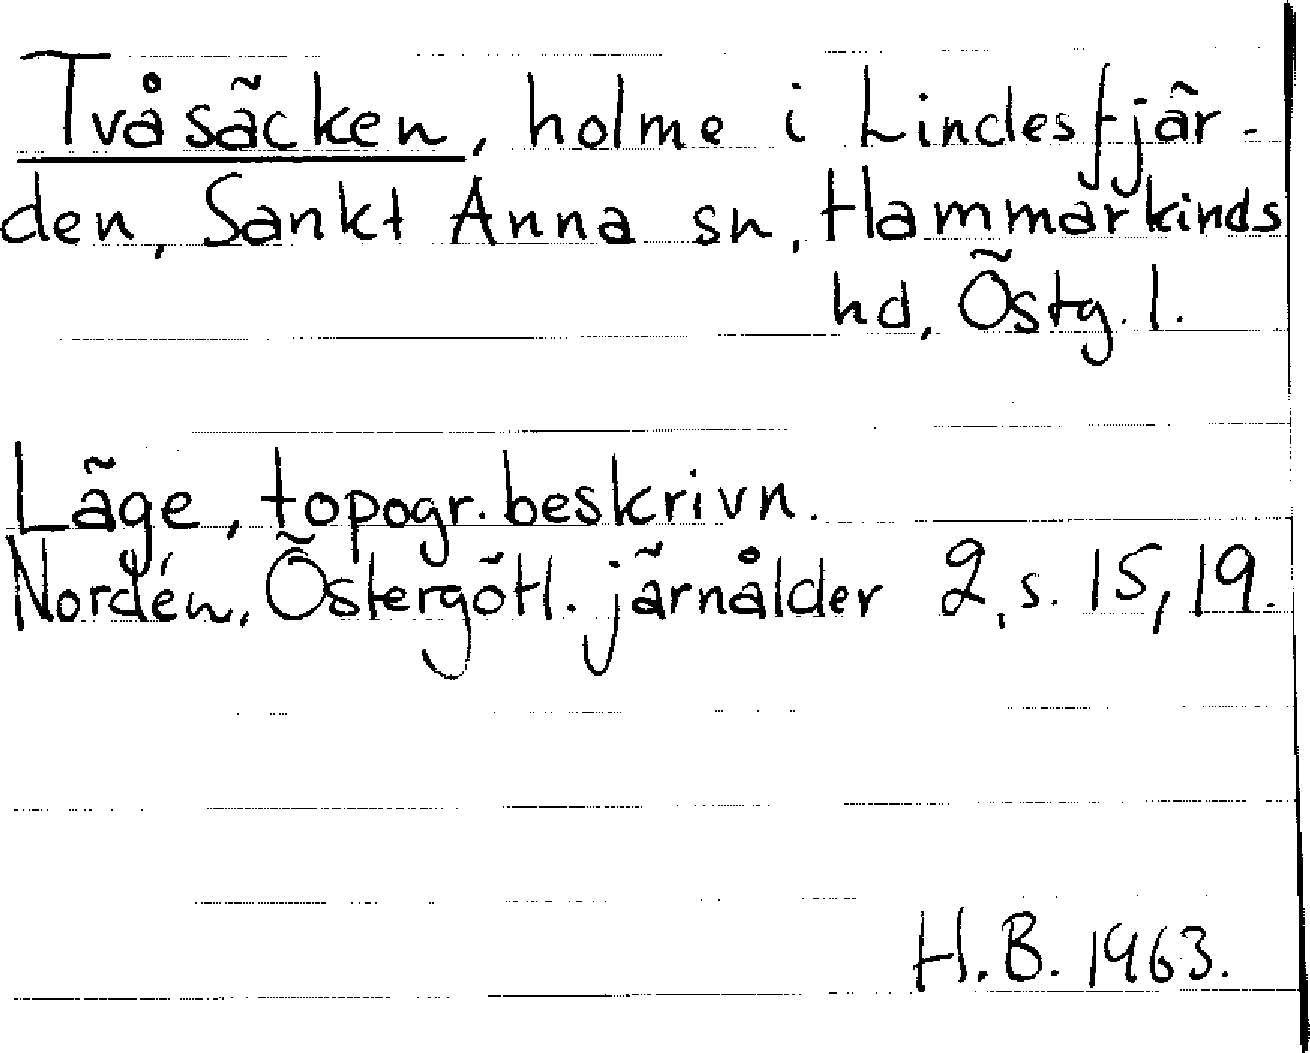 Tvåsäcken, holme i Lindesfjär-
den, Sankt Anna sn, Hammarkinds
hd, Östg. l.
Läge, topogr. beskrivn.
Nordén, Östergötl. järnålder 2, s. 15, 19.
H.B. 1963.